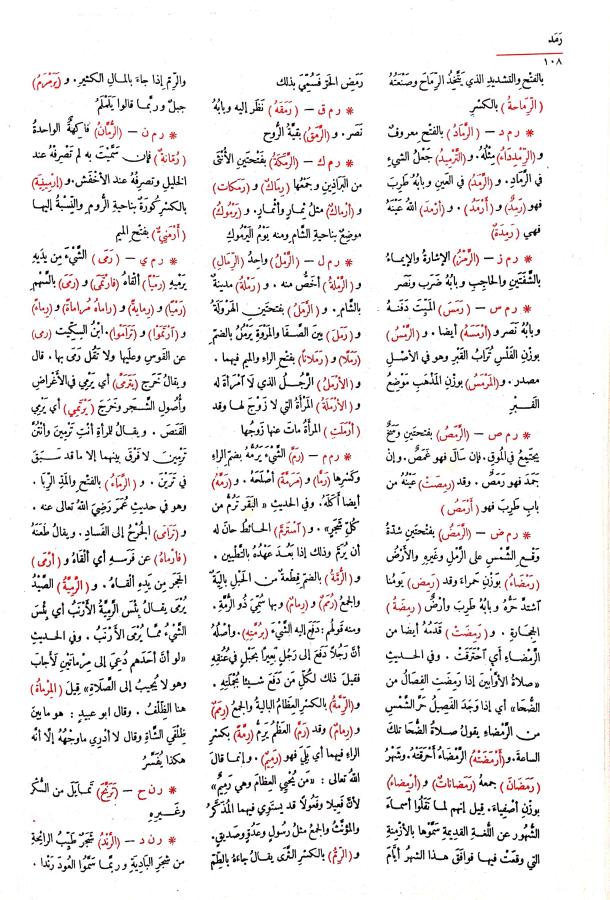 رَمَد
١٠٨
بالفتْح والتشديدِ الذي يَتَّخِذُ الرِّماحَ وصَنْعَتُهُ
(الرِّماحةُ) بالكسْرِ
* ر م د — (الرَّمادُ) بالفتْح معروفٌ
و(الرِّمْدِداءُ) مِثْلُهُ. و(التَّرْميدُ) جَعْلُ الشيءِ
في الرَّمادِ. و(الرَّمَدُ) في العَيْنِ وبابُهُ طَرِبَ
فهو (رَمِدٌ) و (أَرْمَدُ). و(أَرْمَدَ) اللهُ عَيْنَهُ
فهي (رَمِدَةٌ)
* ر م ز — (الرَّمْزُ) الإشارةُ والإيماءُ
بالشَّفَتَيْنِ والحاجِبِ وبابُهُ ضَرَب ونَصَر
* ر م س — (رَمَسَ) المَيِّتَ دَفَنَهُ
وبابُهُ نَصَر و(أَرْمَسَهُ) أيضا. و(الرَّمْسُ)
بوزْنِ الفَلْسِ تُرابُ القَبْرِ وهو في الأصْلِ
مصدر. و(المَرْمَسُ) بوزْنِ المَذْهَبِ مَوْضِعُ
القَبْرِ
* ر م ص — (الرَّمَصُ) بفتحتَينِ وَسَخٌ
يجتَمِعُ في المُوقِ. فإن سالَ فهو غَمَصٌ. وإنْ
جَمَدَ فهو رَمَصٌ. وقد (رَمِصَتْ) عَيْنُهُ من
بابِ طَرِبَ فهو (أَرْمَصُ)
* ر م ض — (الرَّمَضُ) بفتْحتَيْنِ شِدَّةُ
وَقْعِ الشَّمْسِ على الرَّمْلِ وغَيرِهِ والأَرْضُ
(رَمْضاءُ) بوَزْنِ حَمراءَ وقد (رَمِضَ) يومُنا
آشتَدَّ حَرُّهُ وبابُهُ طَرِبَ وأرْضٌ (رَمِضَةُ)
الحِجارَةِ. و(رَمِضَتْ) قَدَمُهُ أيضا من
الرَّمْضاءِ أي آحْتَرَقَتْ. وفي الحديثِ
«صلاةُ الأوَّابينَ إذا رَمِضَتِ الفِصالُ من
الضُّحا» أي إذا وَجَدَ الفَصِيلُ حَرَّ الشَّمْسِ
من الرَّمْضاءِ يقولُ صَلاةُ الضُّحا تلك
الساعةَ. و(أَرْمَضَتْهُ) الرَّمْضاءُ أحرَقَتْهُ. وشَهْرُ
(رَمَضَانَ) جمعُهُ (رَمَضاناتٌ) و (أَرْمِضاءُ)
بوزْنِ أصْفِياءَ. قيل إنهم لما نَقَلُوا أسماءَ
الشُّهورِ عن اللُّغةِ القديمةِ سَمَّوْها بالأزْمِنةِ
التي وقَعَتْ فيها فوافَقَ هذا الشهرُ أيَّامَ
رَمَضِ الحَرِّ فَسُمِّيَ بذلك
* ر م ق — (رَمَقَهُ) نَظَر إليه وبابُهُ
نَصَر. و(الرَّمَقُ) بقيَّةُ الرُّوح
* ر م ك — (الرَّمَكةُ) بفتْحتَيْنِ الأُنثَى
من البَراذِينِ وجَمْعُها (رِماكٌ) و(رَمَكات)
و(أرْماكٌ) مثلُ ثِمارٍ وأثمارٍ. و(يَرْمُوكُ)
موضِعٌ بناحيةِ الشَّامِ ومنه يَوْمُ اليَرْمُوكِ
* ر م ل — (الرَّمْلُ) واحِدُ (الرِّمالِ)
و(الرَّمْلةُ) أخَصُّ منه. و(رَمْلَةُ) مدينةٌ
بالشَّامِ. و(الرَّمَلُ) بفتحتَيْنِ الهَرْوَلَةُ
و(رَمَلَ) بينَ الصَّفا والمَرْوَةِ يَرْمُلُ بالضمِ
(رَمَلًا) و(رَمَلاناً) بفتْحِ الراءِ والمِيمِ فيهما.
و(الأرْمَلُ) الرَّجُلُ الذي لا آمْرأةَ له
و(الأرْمَلَةُ) المرأةُ التي لا زَوْجَ لها وقد
(أَرْمَلَتِ) المرأةُ ماتَ عنها زَوْجُها
* ر م م — (رَمَّ) الشَّيْءَ يَرُمُّهُ بضمِّ الراءِ
وكَسْرِها (رَمًّا) و(مَرَمَّةً) أصْلَحَهُ. و(رَمَّهُ)
أيضا أكَلَهُ. وفي الحديثِ «البقَر تَرُمُّ من
كُلِّ شَجَرٍ». و(آسْتَرَمَّ) الحائطُ حانَ له
أن يُرَمَّ وذلك إذا بَعُدَ عَهْدُهُ بالتَّطْيينِ.
و(الرُّمَّةُ) بالضمِّ قِطعةٌ من الحَبْلِ بالِيَةٌ
والجمعُ (رُمَمٌ) و(رِمامٌ) وبها سُمِّيَ ذُو الرُّمَّةِ.
ومنه قولُهم: دَفَعَ إليه الشَّيْءَ (بِرُمَّتِهِ). وأصْلُهُ
أنَّ رَجُلًا دَفَعَ إلى رَجُلٍ بَعِيرًا بحَبْلٍ في عُنُقِهِ
فقيلَ ذلك لكُلِّ مَن دَفَعَ شَيئا بجُمْلَتِهِ.
و(الرِّمَّةُ) بالكسْرِ العِظامُ الباليةُ والجمعُ (رِمَمٌ)
و(رِمامٌ) وقد (رَمَّ) العَظْمُ يَرِمُّ (رِمَّةً) بكسْرِ
الراءِ فيهما أي بَلِيَ فهو (رَمِيمٌ). وإنما قالَ
اللهُ تعالى: «مَن يُحْيِي العِظامَ وهي رَمِيمٌ»
لأنَّ فَعيلا وفَعُولًا قد يستَوِي فيهما المُذَكَّرُ
والمؤنَّثُ والجمعُ مثلُ رسولٍ وعَدُوٍّ وصَديقٍ.
و(الرِّمُّ) بالكسْرِ الثَّرَى يقالُ جاءهُ بالطِّمِّ
والرِّمِّ إذا جاءَ بالمالِ الكثيرِ. و(يَرَمْرَمُ)
جبلٌ وربَّما قالوا يَلَمْلَمُ
* ر م ن — (الرُّمَّانُ) فاكهةٌ الواحدةُ
(رُمّانةٌ) فإن سَمَّيْتَ به لم تَصْرِفْهُ عند
الخليلِ وتصرِفُهُ عند الأخفَشِ. و(إرْمِينيَة)
بالكسْرِ كُورَةٌ بناحيةِ الرُّومِ والنِّسْبةُ إليها
(أَرْمَنِيٌّ) بفتْحِ المِيمِ
* ر م ي — (رَمَى) الشَّيْءَ مِن يدِهِ
يَرْمِيهِ (رَمْياً) ألقاهُ (فارْتَمَى) و(رَمَى) بالسَّهْمِ
(رَمْياً) و(رِمايةً) و(راماهُ مُراماةً) و(رِماءً)
و(آرتَمَوْا) و(تَرامَوْا). ابنُ السِّكِّيتِ (رمى)
عن القَوسِ وعلَيها ولا تَقُل رَمَى بها. قال
ويقالُ خَرَجَ (يَتَرَمَّى) أي يَرْمِي في الأغْراضِ
وأُصولِ الشَّجَرِ وخَرَجَ (يَرْتَمِي) أي يَرْمِي
القَنَصَ. ويقالُ للمرأةِ أنتِ تَرْمِينَ وأنتُنَّ
تَرْمِينَ لا فَرْقَ بينهما إلا ما قد سَبَقَ
في تَرَيْنَ. و(الرَّماءُ) بالفتْحِ والمَدِّ الرِّبا.
وهو في حديثِ عُمَرَ رَضِيَ اللهُ تعالى عنه.
و(تَرَامَى) الجُرْحُ إلى الفَسادِ. ويقالُ طَعَنَهُ
(فأَرْماهُ) عن فَرسِهِ أي ألقاهُ و(أَرْمَى)
الحَجَرَ مِن يَدِهِ ألقاهُ. و(الرَّمِيَّةُ) الصَّيْدُ
يُرْمَى يقالُ بِئْسَ الرَّمِيَّةُ الأرْنَبُ أي بِئْسَ
الشَّيْءُ ممَّا يُرْمَى الأَرْنَبُ. وفي الحديثِ
«لو أنَّ أحَدَهم دُعِيَ إلى مِرْماتَيْنِ لأجابَ
وهو لا يُجيبُ إلى الصَّلاةِ» قِيلَ (المِرْماةُ)
هنا الظِّلْفُ. وقال أبو عبيدٍ: هو ما بينَ
ظِلْفَيِ الشَّاةِ وقال لا أدْرِي ما وجْهُهُ إلَّا أنه
هكذا يُفَسَّرُ
* ر ن ح — (تَرَنَّحَ) تَمايَلَ من السُّكْرِ
وغَيرِهِ
* ر ن د — (الرَّنْدُ) شَجَرٌ طَيِّبُ الرائحةِ
من شَجَرِ الباديَةِ وربَّما سَمَّوُا العُودَ رَنْدا.